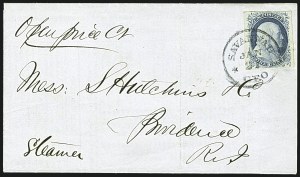 Open price Ct
SAVANNAH
GEO
Mess. S Hutchins
Providence
R.I
Steamer